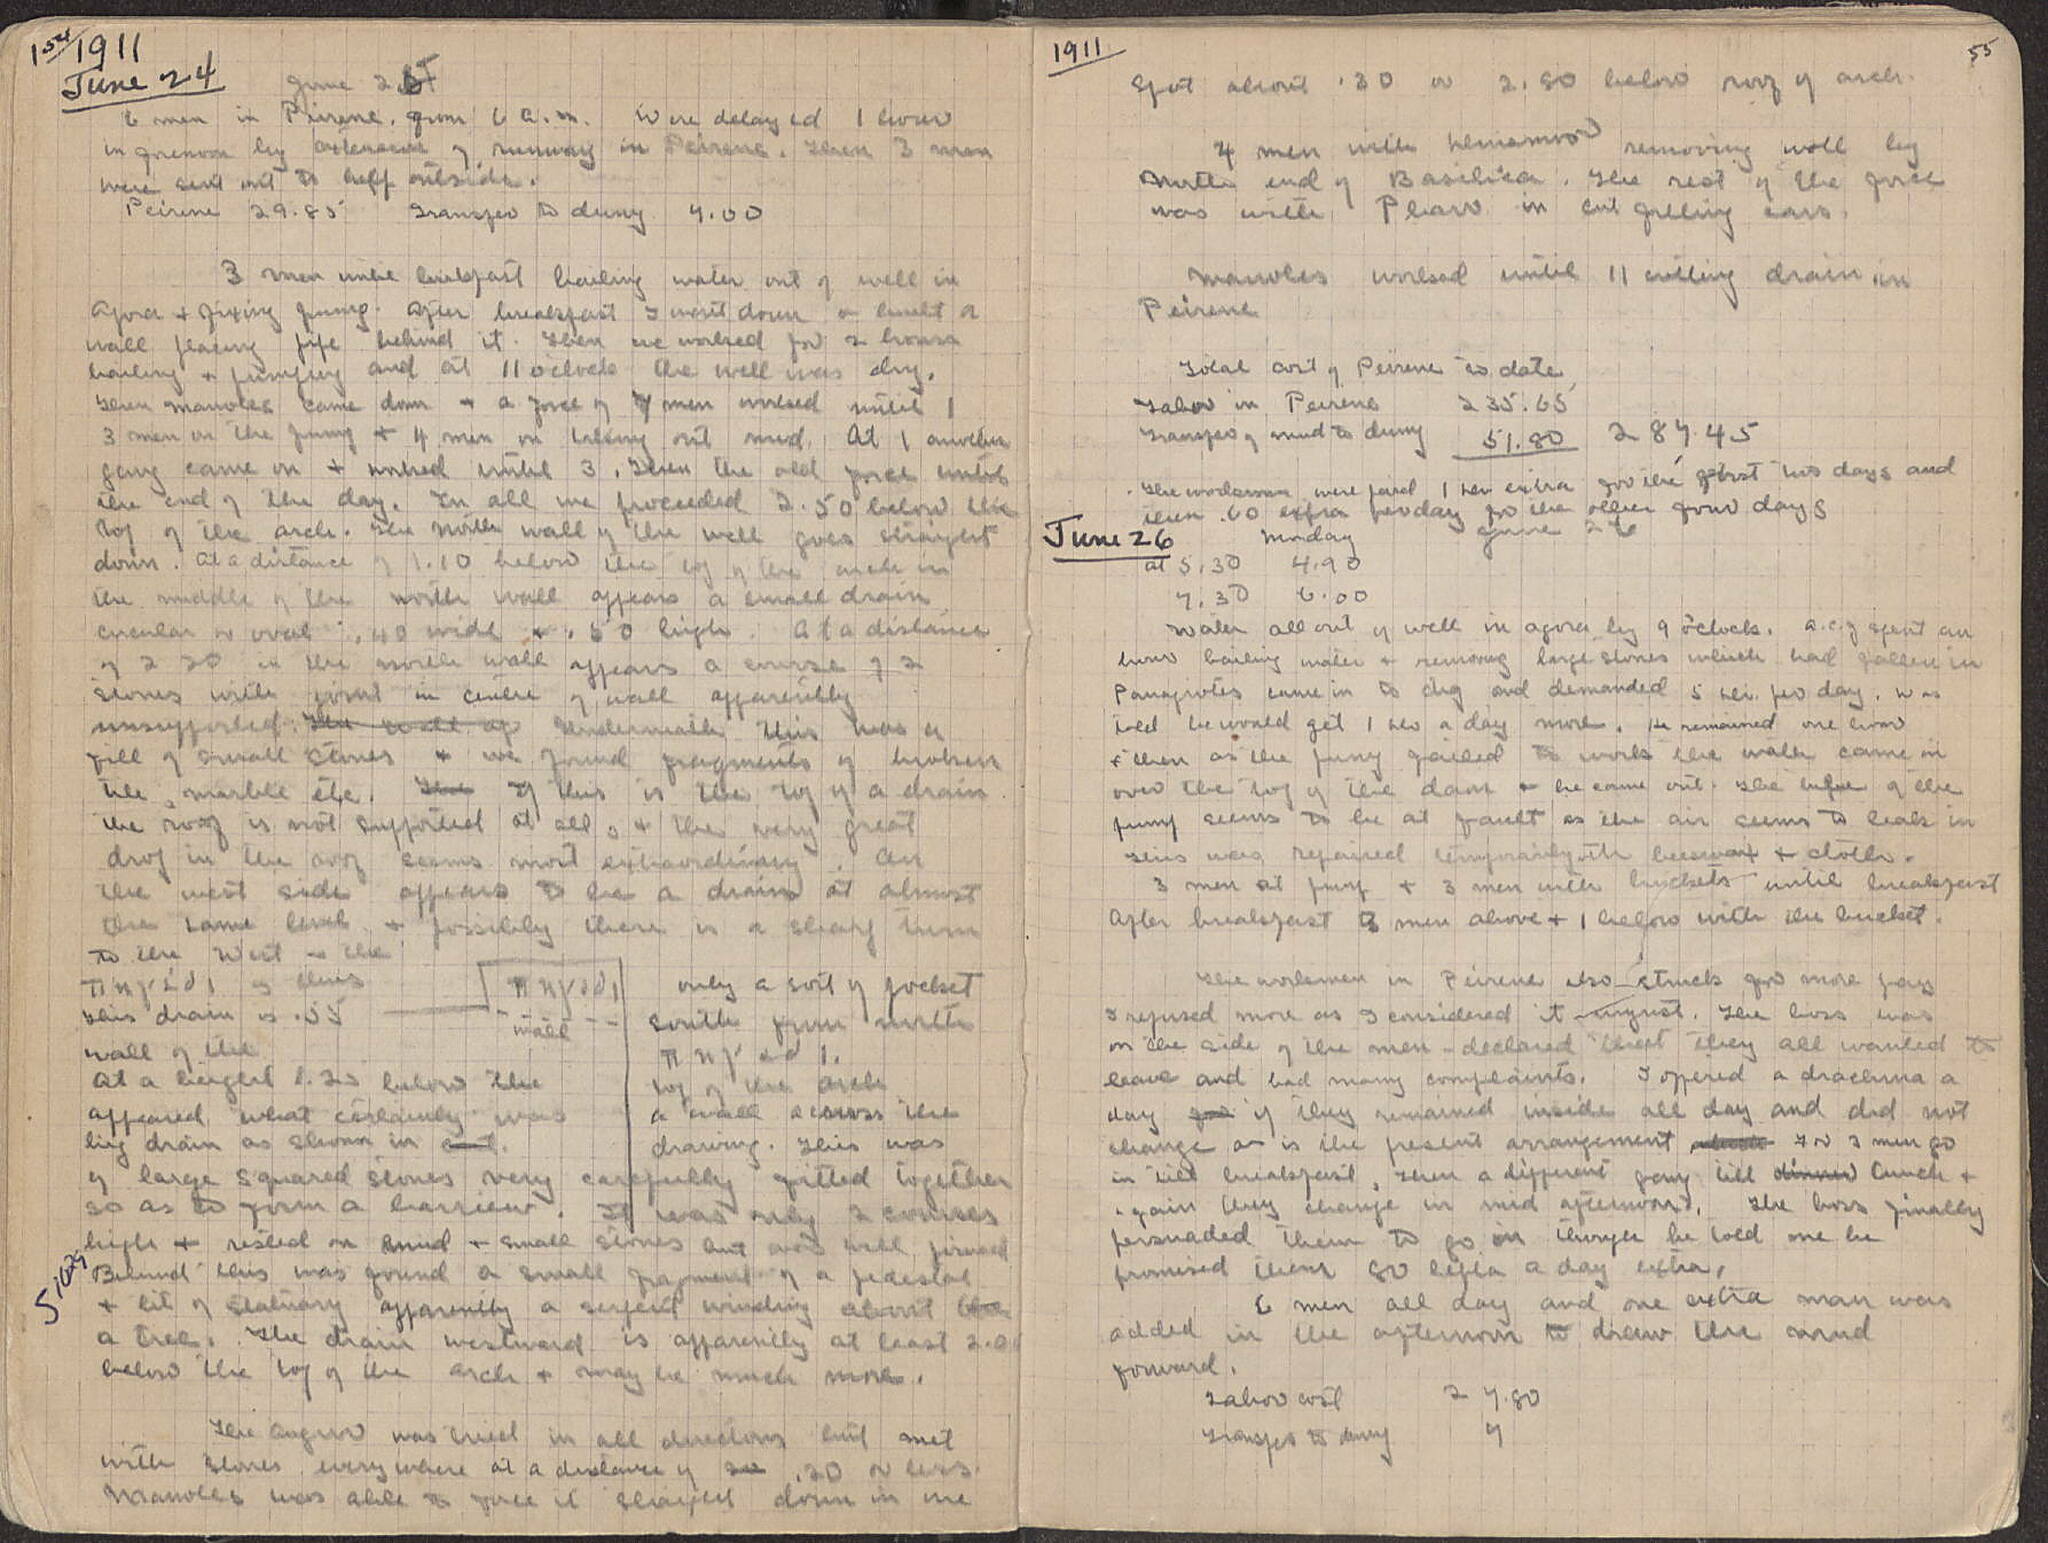 1911
June 24
6 men in Peirene from 6 a.m. Were delayed 1 hour
in forenoon by extension of runway in Peirene. Then 3 men
were sent out to help outside.
Peirene 29.85 Transfer to dump 7.00
3 men until breakfast bailing water out of well in
Agora + fixing pump. After breakfast I went down + built a
wall placing pipe behind it. Then we worked for 2 hours
bailing + pumping and at 11 o'clock the well was dry.
Then Manoles came down + a force of 7 men worked until 1
3 men on the pump + 4 men on taking out mud. At 1 another
gang came on + worked until 3. Then the old force until
the end of the day. In all we proceeded 2.50 below the
top of the arch. The North wall of the well goes straight
down. At a distance of 1.10 below the top of the arch in
the middle of the north wall appears a small drain
circular or oval .40 wide + .50 high. At a distance
of 2.20 in the north wall appears a course of 2
stones with joint in centre of wall apparently
unsupported. The wall ap Underneath this was a
fill of small stones + we found fragments of broken
tile, marble etc. The If this is the top of a drain
the roof is not supported at all, + the very great
drop in the roof seems most extraordinary. On
the west side appears to be a drain at almost
the same level + possibly there is a sharp turn
to the West + the
πηγάδι is thus only a sort of pocket
πηγάδι
wall
this drain is .55 South from north
wall of the πηγάδι.
At a height 1.20 below the top of the arch
appeared what certainly was a wall across the
big drain as shown in cut. drawing. This was
of large squared stones very carefully fitted together
so as to form a barrier. It was only 2 courses
high + rested on mud + small stones but was well joined
S 1029
Behind this was found a small fragment of a pedestal
+ bit of statuary apparently a serpent winding about the
a tree. The drain westward is apparently at least 2.0
below the top of the arch + may be much more.
The auger was tried in all directions but met
with stones everywhere at a distance of .20 or less.
Manoles was able to force it straight down in one
1911
55
Spot about .30 or 2.80 below roof of arch.
4 men with removing wall by
North end of Basilica. The rest of the force
was with Pleav in cut filling cars.
Manoles worked until 11 cutting drain in
Peirene
Total cost of Peirene to date
Labor in Peirene 235.65
Transfer of mud to dump 51.80 287.45
The workmen were paid 1 dr. extra for the first two days and
then .60 extra per day for the other four days
June 26 Monday June 26
at 5.30 4.90
7.30 6.00
Water all out of well in agora by 9 o'clock. a.c.g spent an
hour bailing water + removing large stones which had fallen in
Panagiotes came in to dig and demanded 5 dr. per day. Was
told he would get 1 dr a day more. He remained one hour
+ then as the pump failed to work the water came in
over the top of the dam + he came out. The tube of the
pump seems to be at fault as the air seems to leak in
This was repaired temporarily with beeswax + cloth.
3 men at pump + 3 men with buckets until breakfast
After breakfast 3 men above + 1 below with the bucket.
The workmen in Peirene also struck for more pay
I refused more as I considered it unjust. The boss was
on the side of the men - declared that they all wanted to
leave and had many complaints. I offered a drachma a
day for if they remained inside all day and did not
change as is the present arrangement for 3 men go
in till breakfast, then a different gang till dinner lunch +
again they change in mid afternoon. The boss finally
persuaded them to go in though he told one he
promised them 80 lepta a day extra.
6 men all day and one extra man was
added in the afternoon to draw the mud
forward.
Labor cost 27.80
Transfer to dump 7